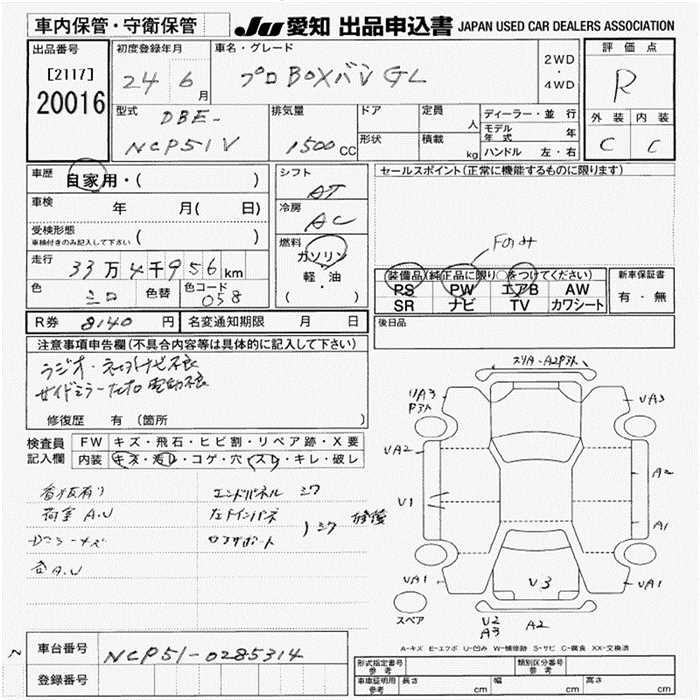 車内保管・守衛保管
JU 愛知 出品申込書 JAPAN USED CAR DEALERS ASSOCIATION
出品番号
[2117]
20016
初度登録年月
24 6月
車名・グレード
プロBOXバン GL
2WD
・
4WD
評価点
R
外装 内装
C C
型式
DBE-
NCP51V
排気量
1500cc
ドア
形状
定員
人
積載
kg
ディーラー・並行
モデル年式 年
ハンドル 左・右
車歴
自家用・( )
車検
年 月( 日)
受検形態
車検付きのみ記入して下さい ( )
走行
33万4千956km
色
シロ
色替
色コード
058
シフト
AT
冷房
AC
燃料
ガソリン
軽・油
( )
セールスポイント(正常に機能するものに限ります)
装備品(純正品に限り○をつけてください)
PS PW エアB AW
SR ナビ TV カワシート
新車保証書
有・無
R券 8140円
名変通知期限 月 日
後日品
注意事項申告欄(不具合内容等は具体的に記入して下さい)
ラジオ・
サイドミラー左右電動不良
修復歴 有 (箇所 )
検査員
記入欄
FW キズ・飛石・ヒビ割・リペア跡・X要
内装 キズ・汚レ・コゲ・穴・スレ・キレ・破レ
荷室 A.U
エンドパネル シワ
シワ 修復
A2
UA3
UA3
UA2
A2
U1
A1
UA1
UA1
U3
U2
A3
A2
スペア
A-キズ E-エクボ U-凹み W-補修跡 S-サビ C-腐食 XX-交換済
車台番号
NCP51-0285314
登録番号
形式指定番号
参考
類別区分番号
参考
車庫証明用
参考
長さ cm 幅 cm 高さ cm